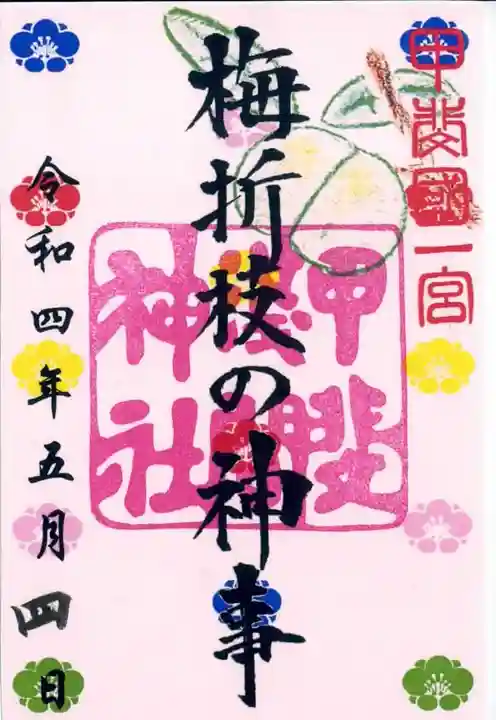 甲斐國一宮
梅折枝の神事
甲斐
神社
令和四年五月四日